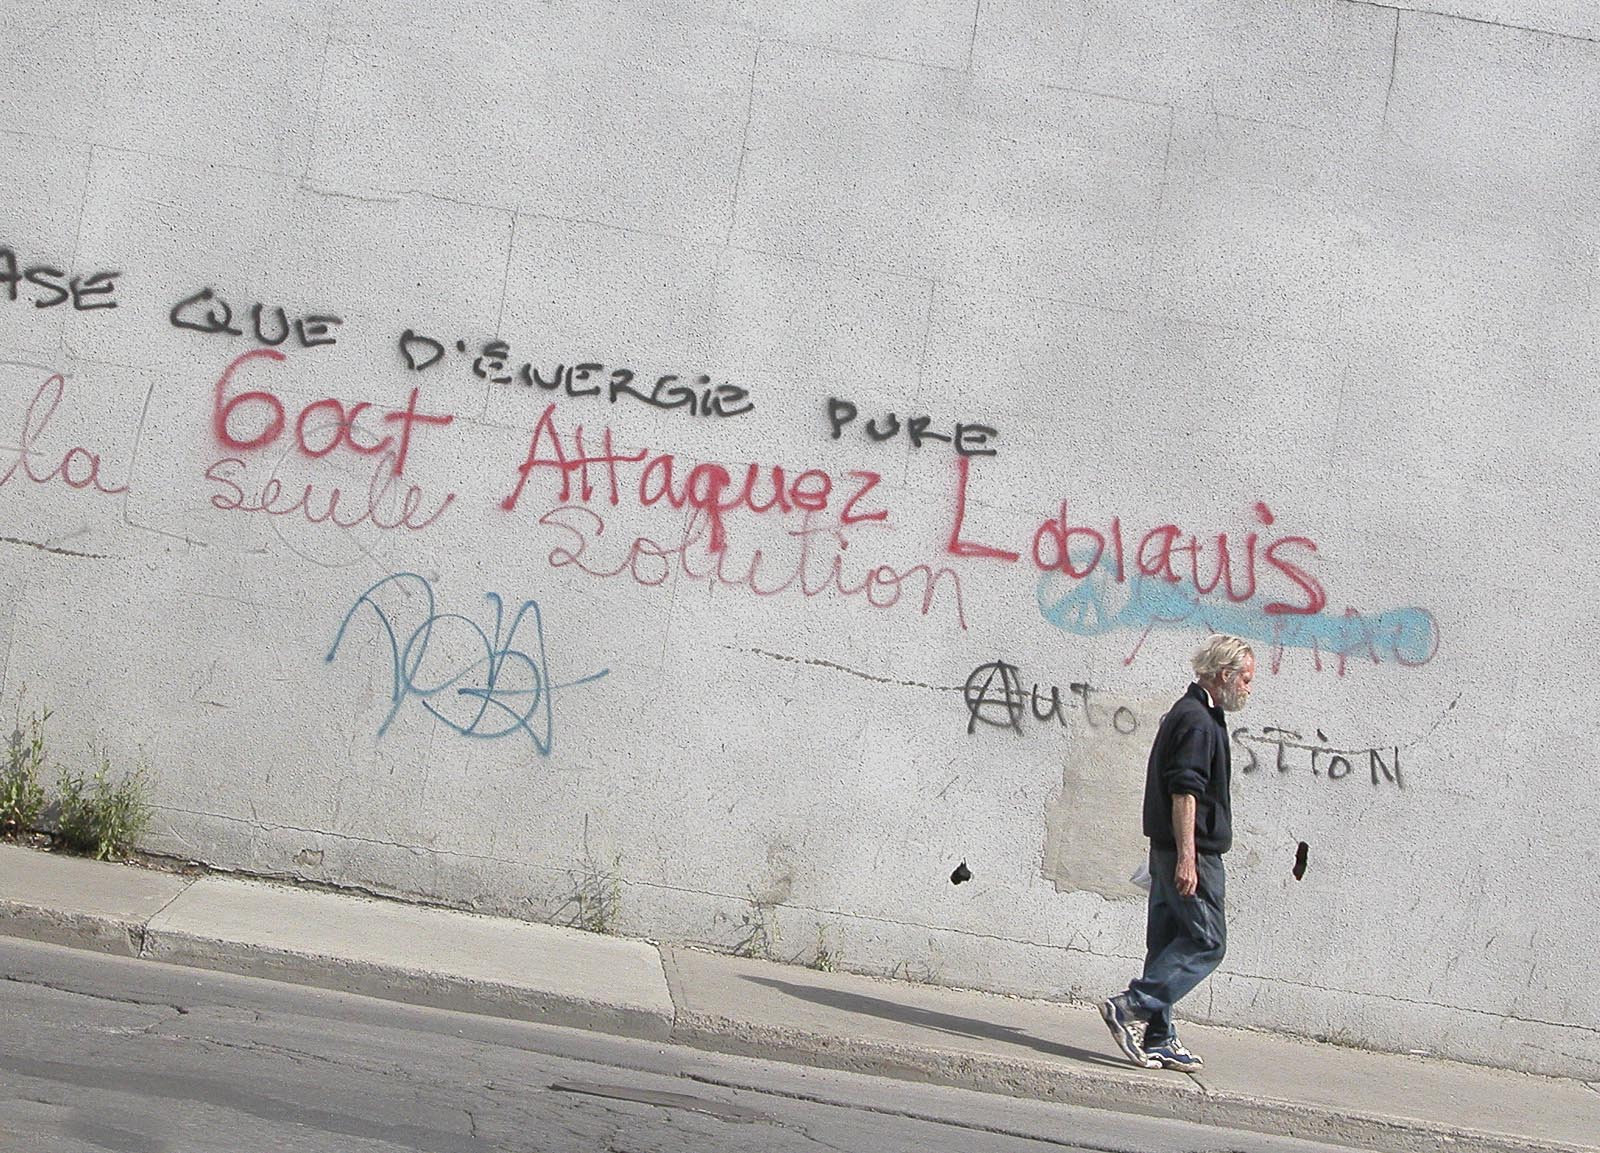 ASE QUE D'ÉNERGIE PURE
6 oct Attaquez Loblaws
la seule Solution
Auto STION